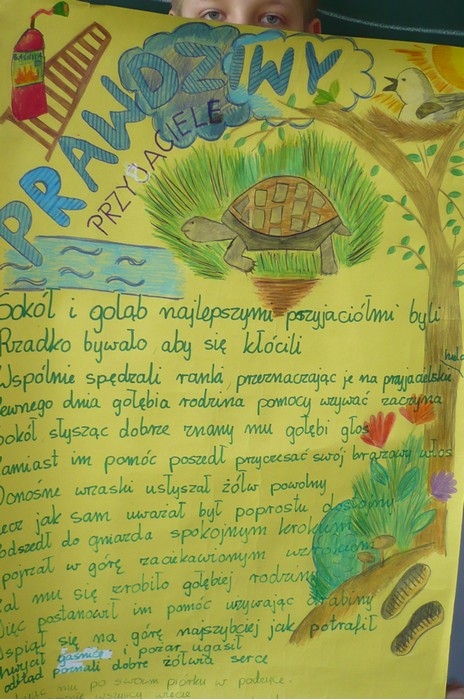 PRAWDZIWY
PRZYJACIELE
Sokół i gołąb najlepszymi przyjaciółmi byli
Rzadko bywało aby się kłócili
Wspólnie spędzali ranki, przeznaczając je na przyjacielskie
Pewnego dnia gołębia rodzina pomocy wzywać zaczyna
Sokół słysząc dobrze znany mu gołębi głos
Zamiast im pomóc poszedł przyczesać swój brązowy włos
Donośne wrzaski usłyszał żółw powolny
Lecz jak sam uważał był poprostu dostojny
Podszedł do gniazda spokojnym krokiem
Spojrzał w górę zaciekawionym wzrokiem
Żal mu się zrobiło gołębiej rodziny
Więc postanowił im pomóc używając drabiny
Wspiął się na górę najszybciej jak potrafił
chwycił gaśnicę i pożar ugasił
odtąd poznali dobre żółwia serce
mu po swoim piórku w podzięce